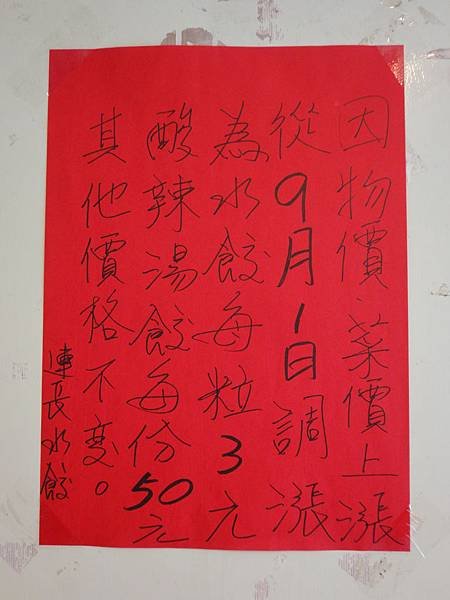 因物價、菜價上漲
從9月1日調漲
為水餃每粒3元
酸辣湯餃每份50元
其他價格不变。
連長水餃